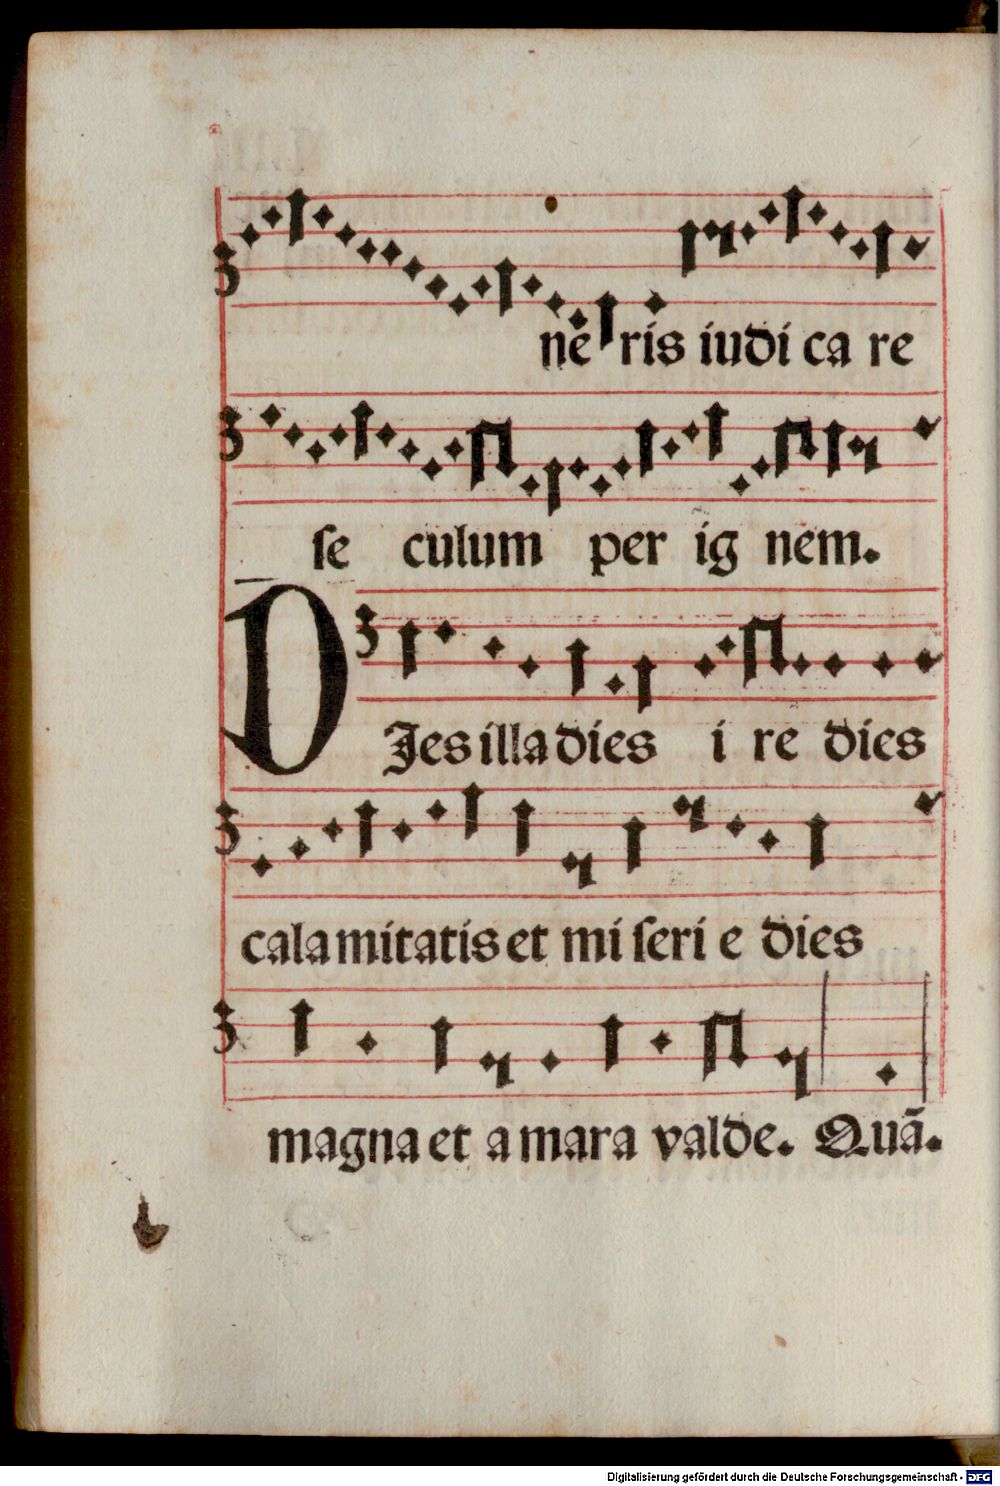 ne ris iudi ca re
se culum per ig nem.
DIes illa dies i re dies
calamitatis et mi seri e dies
magna et amara valde. Quā.
Digitalisierung gefördert durch die Deutsche Forschungsgemeinschaft - DFG